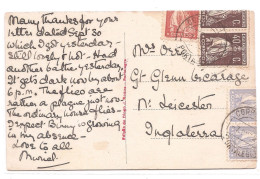 Many thanks for your
letter dated Sept 30
which I got yesterday.
Still lovely & hot. Had
another bathe yesterday.
It gets dark now by about
6 p.m. The flies are
rather a plague just now.
The ordinary house flies.
I expect Binny is growing
in my absence
Love to all
Muriel
Gt Glenn Vicarage
Nr. Leicester
Inglaterra